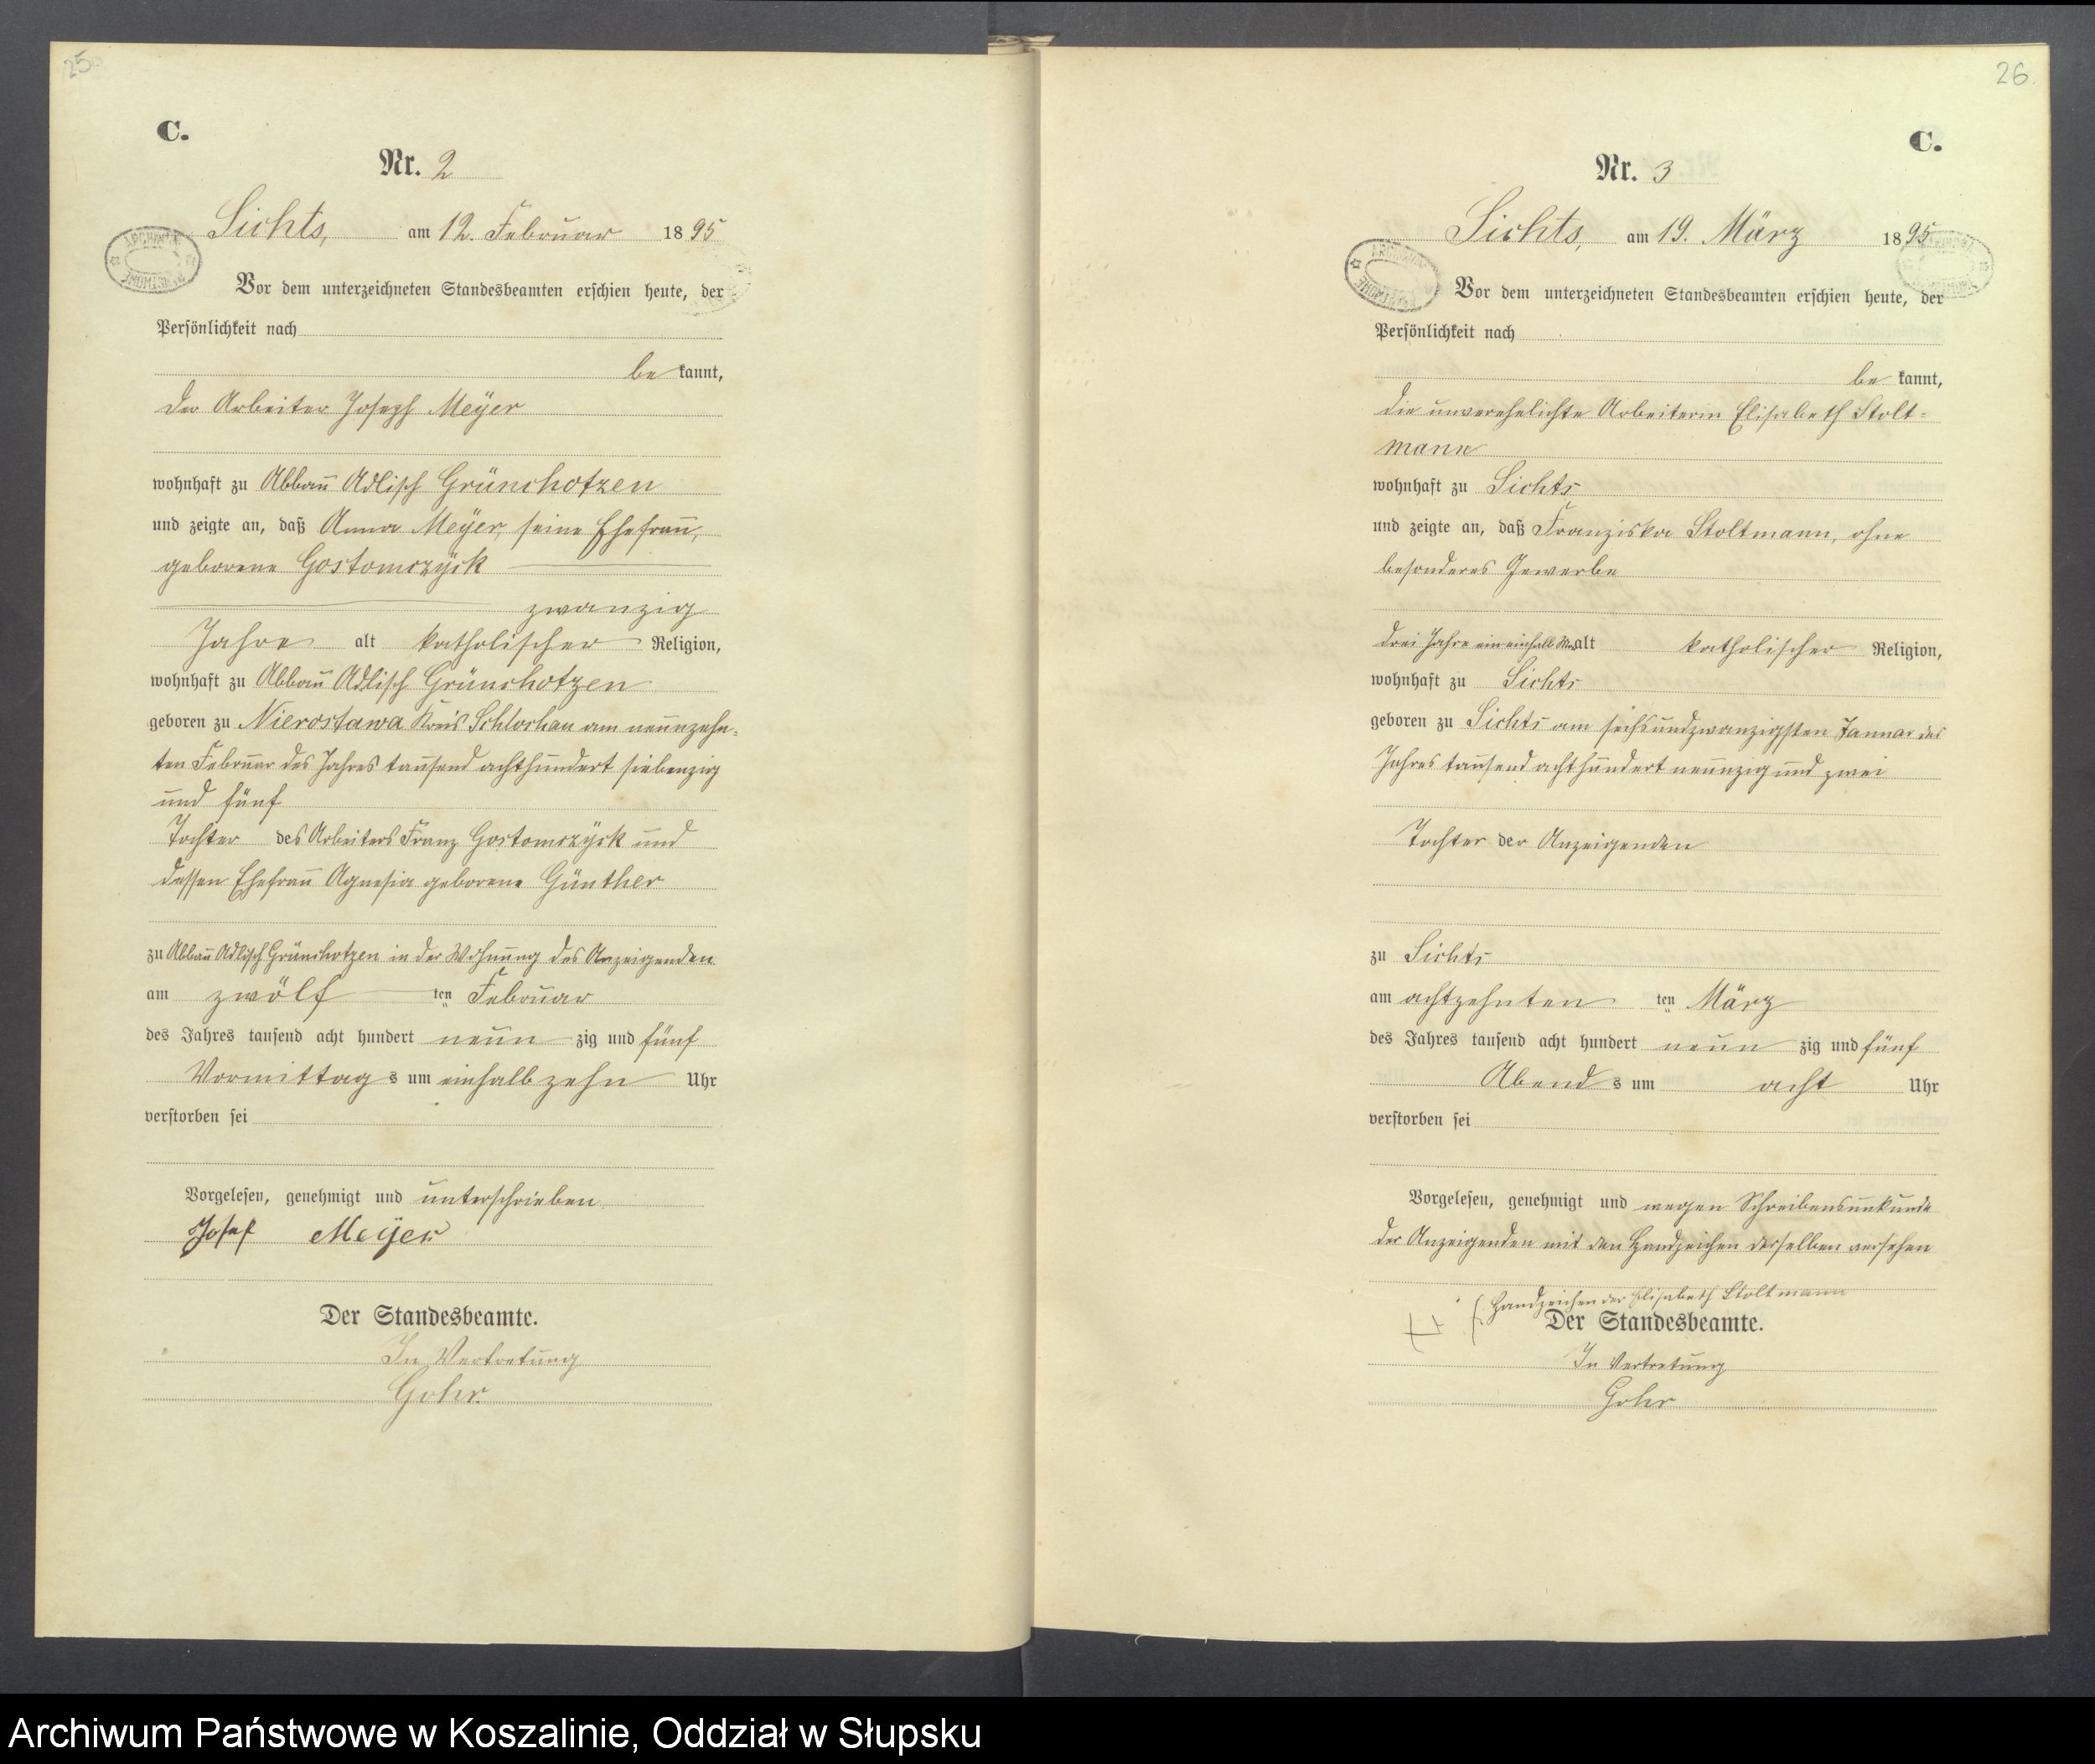 25
C.
Nr. 2
Sichts, am 12. Februar 1895
Vor dem unterzeichneten Standesbeamten erschien heute, der
Persönlichkeit nach
be kannt,
der Arbeiter Joseph Meÿer
wohnhaft zu Abbau Adlisch Grünchotzen
und zeigte an, daß Anna Meÿer, seine Ehefrau,
geborene Gostomczÿck
zwanzig
Jahre alt katholischer Religion,
wohnhaft zu Abbau Adlisch Grünchotzen
geboren zu Nierostawa Kreis Schlochau am neunzehn-
ten Februar des Jahres tausend achthundert siebenzig
und fünf
Tochter des Arbeiters Franz Gostomczÿck und
dessen Ehefrau Agnesia geborene Günther
zu Abbau Adlisch Grünchotzen in der Wohnung des Anzeigenden
am zwölf ten Februar
des Jahres tausend acht hundert neun zig und fünf
Vormittag s um einhalb zehn Uhr
verstorben sei
Vorgelesen, genehmigt und unterschrieben
Josef Meÿer
Der Standesbeamte.
In Vertretung
Gohr.
26.
C.
Nr. 3
Sichts, am 19. März 1895
Vor dem unterzeichneten Standesbeamten erschien heute, der
Persönlichkeit nach
be kannt,
die unverehelichte Arbeiterin Elisabeth Stolt-
mann
wohnhaft zu Sichts
und zeigte an, daß Franziska Stoltmann, ohne
besonderes Gewerbe
drei Jahre ein einhalb M. alt katholischer Religion,
wohnhaft zu Sichts
geboren zu Sichts am sechsundzwanzigsten Januar des
Jahres tausend achthundert neunzig und zwei
Tochter der Anzeigenden
zu Sichts
am achtzehnten ten März
des Jahres tausend acht hundert neun zig und fünf
Abend s um acht Uhr
verstorben sei
Vorgelesen, genehmigt und wegen Schreibensunkunde
der Anzeigenden mit den Handzeichen derselben versehen
Handzeichen der Elisabeth Stoltmann
Der Standesbeamte.
In Vertretung
Gohr
Archiwum Państwowe w Koszalinie, Oddział w Słupsku